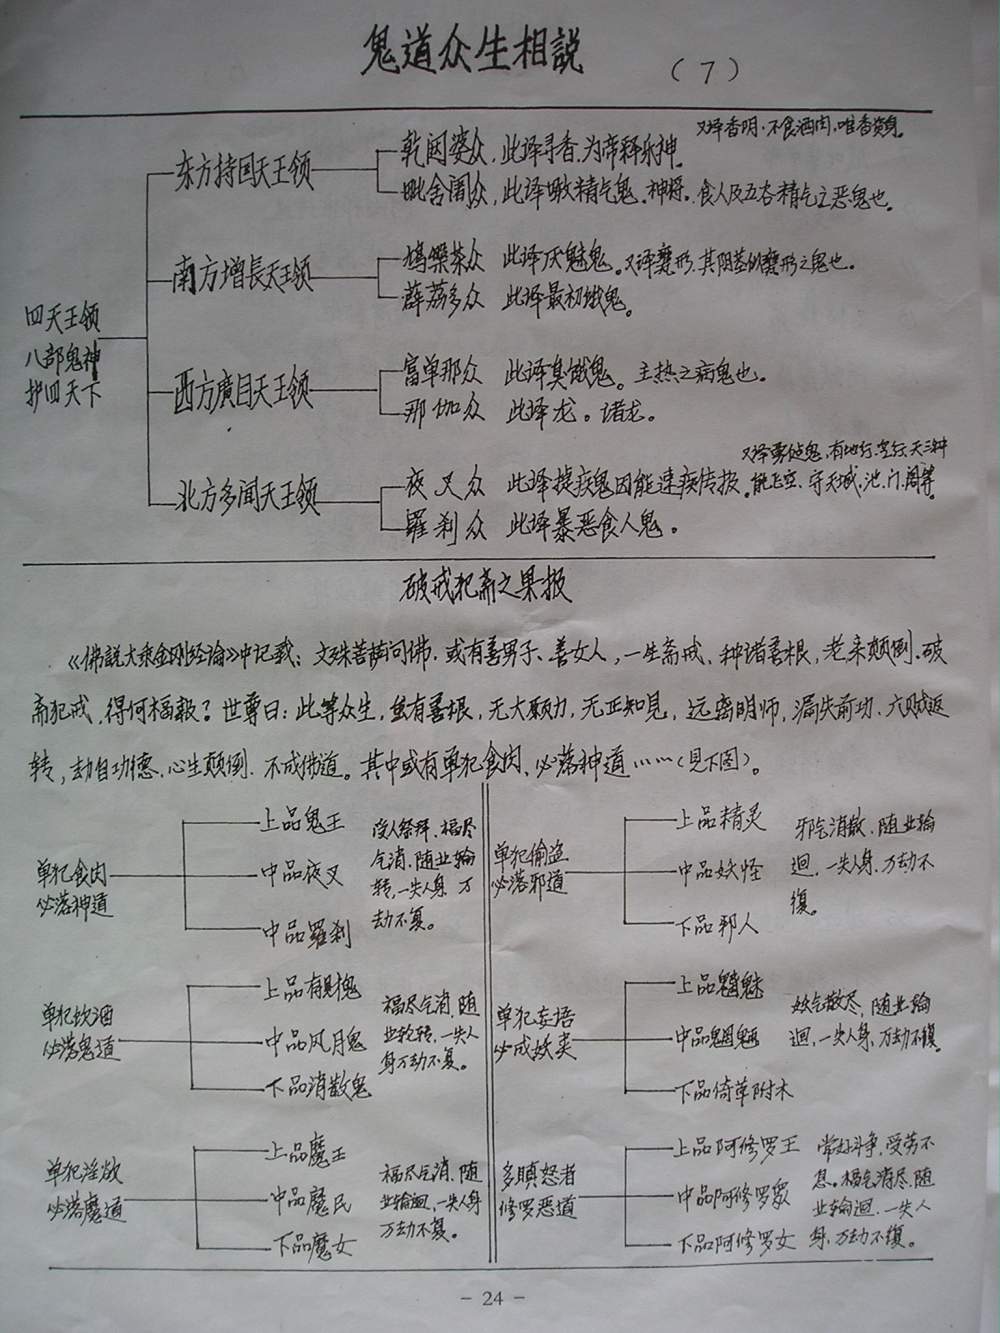 鬼道众生相説 （7）
又译香阴.不食酒肉,唯香资身。
东方持国天王领
乾闼婆众,此译寻香,为帝释乐神.
毗舍阇众,此译噉精气鬼.神将.食人及五谷精气之恶鬼也.
南方增長天王领
鸠槃茶众 此译厌魅鬼。又译甕形.其阴茎似甕形之鬼也.
薜荔多众 此译最初饿鬼。
四天王领
八部鬼神
护四天下
西方廣目天王领
富单那众 此译臭饿鬼。主热之病鬼也.
那伽众 此译龙。诸龙。
又译勇健鬼,有地行.空行.天三种
北方多聞天王领
夜叉众 此译捷疾鬼因能速疾传报.能飞空、守天城、池、门、阁等.
羅刹众 此译暴恶食人鬼。
破戒犯斋之果报
《佛説大乘金刚经论》中记载:文殊菩萨问佛.或有善男子、善女人,一生斋戒、种诸善根,老来颠倒.破
斋犯戒,得何福報?世尊曰:此等众生,虽有善根,无大願力,无正知見,远离明师,漏失前功.六贼返
转,劫自功德.心生颠倒.不成佛道。其中或有单犯食肉、必落神道……(见下图)。
单犯食肉
必落神道
上品鬼王
中品夜叉
中品羅刹
受人祭拜.福尽
气消.随业輪
转,一失人身.万
劫不复。
单犯偷盗
必落邪道
上品精灵
中品妖怪
下品邪人
邪气消散.随业輪
迴.一失人身,万劫不
復。
单犯饮酒
必落鬼道
上品有财鬼
中品风月鬼
下品消散鬼
福尽气消.随
业轮转,一失人
身万劫不复。
单犯妄语
必成妖类
上品魑魅
中品魍魎
下品倚草附木
妖气散尽,随业輪
迴.一失人身,万劫不復。
单犯淫慾
必落魔道
上品魔王
中品魔民
下品魔女
福尽气消.随
业輪迴,一失人身
万劫不复。
多瞋怒者
修罗恶道
上品阿修罗王
中品阿修罗众
下品阿修罗女
常好斗争,受苦不
息。福气消尽.随
业輪迴.一失人
身.万劫不復。
- 24 -